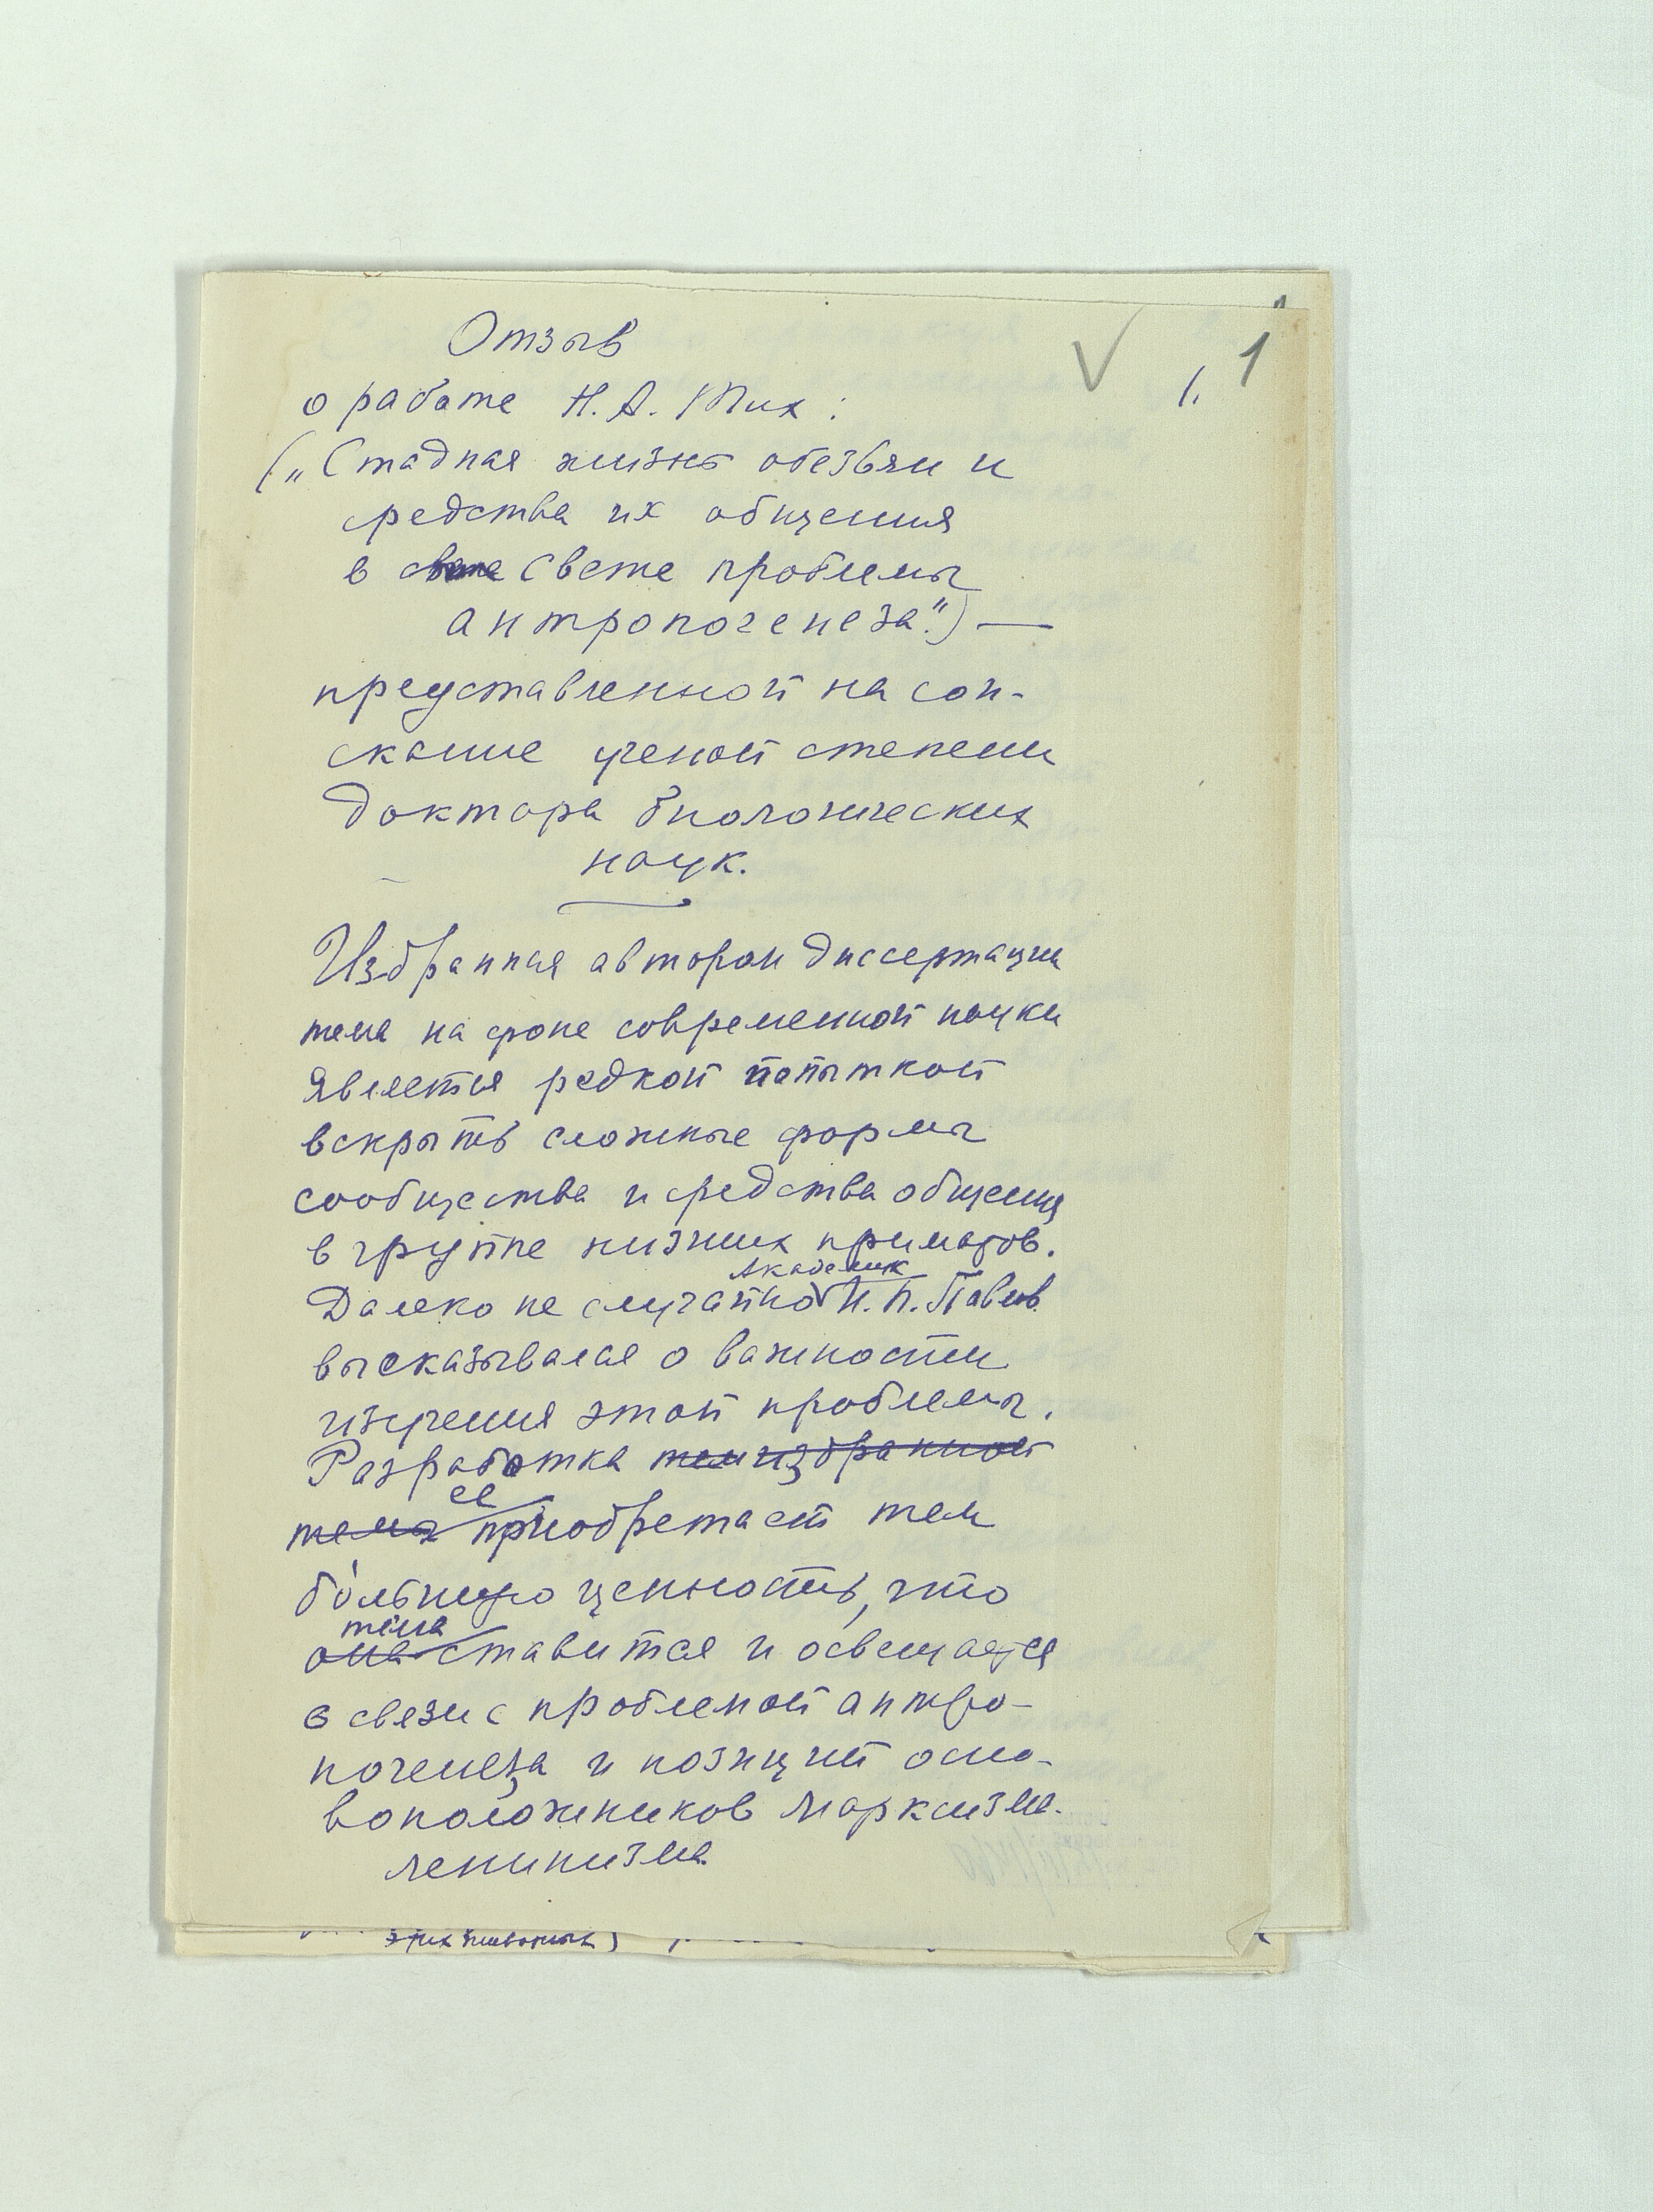 Отзыв
1. 1
о работе Н. А. Тих:
(„Стадная жизнь обезьян и
средства их общения
в свете свете проблемы
антропогенеза".) —
представленной на сои-
скание ученой степени
доктора биологических
наук.
Избранная автором диссертации
тема на фоне современной науки
является редкой попыткой
вскрыть сложные формы
сообщества и средства общения
в группе низших приматов.
Академик
Далеко не случайно И. П. Павлов
высказывался о важности
изучения этой проблемы.
Разработка темы избранной
ее
темы приобретает тем
бóльшую ценность, что
тема
она ставится и освещается
в связи с проблемой антро-
погенеза и позиций осно-
воположников марксизма-
ленинизма.
этих животных)